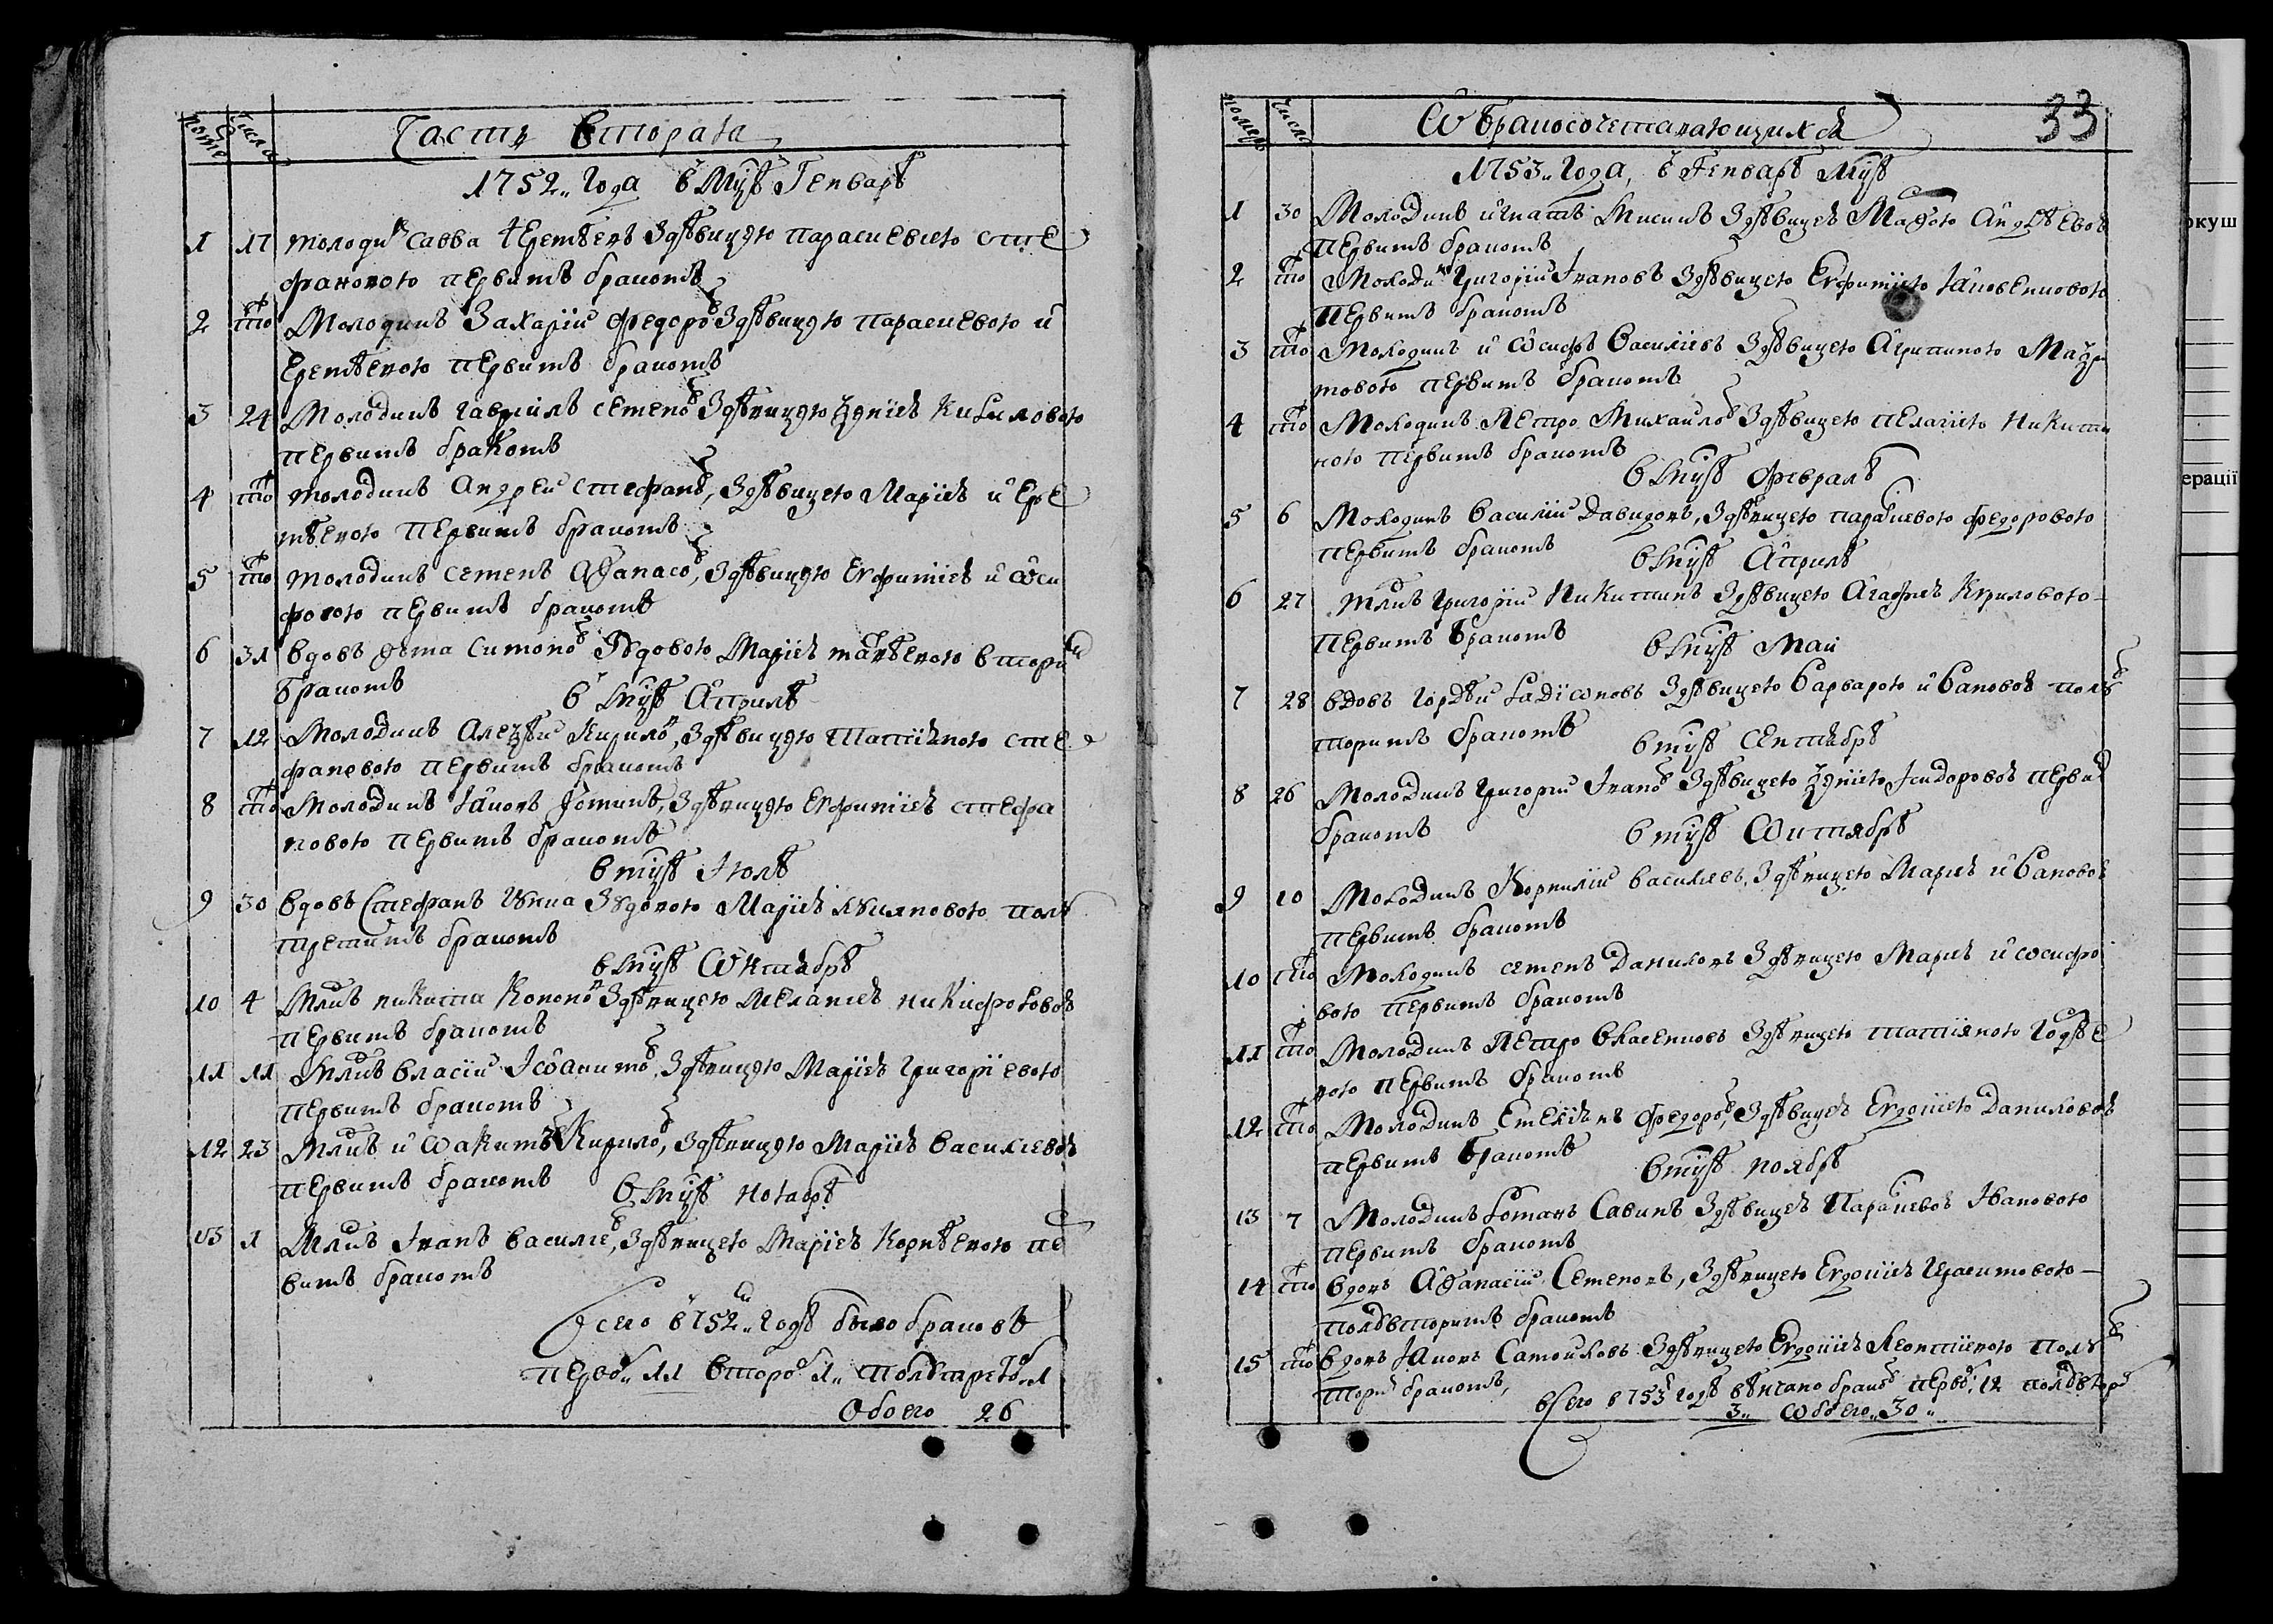 номе числа
Часть вторая
1752 „ года в мцѣ Генварѣ
1 17 молодик Савва Еремѣевъ з дѣвицею Параскевіею Сте
фановою первимъ бракомъ
2 то Молодикъ Захарій Федоров з дѣвицею Параскевою
Еремѣевою первимъ бракомъ
3 24 Молодикъ Гавриилъ Семенов з дѣвицею Киріловою
первимъ бракомъ
4 то молодикъ Андрей Стефанов, з дѣвицею Маріею Ере
мѣевою первимъ бракомъ
5 то молодикъ Семенъ Афанасов, з дѣвицею Евфиміею иѡси
фовою первимъ бракомъ
6 31 вдовъ Фома Симонов з вдовою Маріею вторим
бракомъ
в мцѣ Априлѣ
7 12 Молодикъ Алеѯѣй Кирилов, з дѣвицею Татіяною Сте
фановою первимъ бракомъ
8 то Молодикъ Яковъ Фоминъ, з дѣвицею Евфиміею Стефа
новою первимъ бракомъ
в мцѣ Іюлѣ
9 30 вдовъ Стефанъ з вдовою Маріею Лукяновою полъ
третимъ бракомъ
в мцѣ Ѡктябрѣ
10 4 Млдикъ Никита Кононов з дѣвицею Меланіею Никифоровою
первимъ бракомъ
11 11 Млдикъ Власій Іѡакимов, з дѣвицею Маріею Григоріевою
первимъ бракомъ
12 23 Млдикъ иѡакимъ Кирилов, з дѣвицею Маріею Василіевою
первимъ бракомъ
в мцѣ Ноябрѣ
13 1 Млдикъ Іванъ Василіев, з дѣвицею Маріею Корнѣевою пер
вимъ бракомъ
Всего в 752 „ годѣ было браковъ
перво „ 11 второ 1 „ полътрето „ 1
Обоего 26
номеръ число
Ѡ Бракосочетавающихся
33
1753 „ года, в Генварѣ мцѣ
1 30 Молодикъ Игнатъ Мисикъ з дѣвицею Марѳою Андрѣевою
первимъ бракомъ
2 то Молодик Григорій Івановъ з дѣвицею Евфиміею Яковенковою
первимъ бракомъ
3 то Молодикъ иѡсифъ Василіевъ з дѣвицею Агрипиною Маѯи
мовою первимъ бракомъ
4 то Молодикъ Петро Михаилов з дѣвицею Пелагіею Никити
ною первимъ бракомъ
в мцѣ Февралѣ
5 6 Молодикъ Василій Давидовъ, з дѣвицею Параскевою Федоровою
первимъ бракомъ
в мцѣ Априлѣ
6 27 млдикъ Григорій Никитинъ з дѣвицею Агафіею Криловою
первимъ бракомъ
в мцѣ Маи
7 28 вдовъ Гордѣй Радіѡновъ з дѣвицею Варварою Ивановою полъв
торимъ бракомъ
в мцѣ Сентябрѣ
8 26 Молодикъ Григорій Іванов з дѣвицею Ѯеніею Ісидоровою первим
бракомъ
в мцѣ Ѡктябрѣ
9 10 Молодикъ Корнилій Василиевъ, з дѣвицею Маріею Ивановою
первимъ бракомъ
10 то Молодикъ Семенъ Даниловъ з дѣвицею Маріею иѡсифо
вою первимъ бракомъ
11 то Молодикъ Петро Власенковъ з дѣвицею Татіяною Гордѣе
вою первимъ бракомъ
12 то Молодикъ Емеліянъ Федоров, з дѣвицею Евдокіею Даниловою
первимъ бракомъ
в мцѣ Ноябрѣ
13 7 Молодикъ Романъ Савинъ з дѣвицею Параскевою Ивановою
первимъ бракомъ
14 то вдовъ Аѳанасій Семеновъ, з дѣвицею Евдокіею Герасимовою
полъвторимъ бракомъ
15 то вдовъ Яковъ Самойловъ з дѣвицею Евдокіею Леонтіевою полъв
торим бракомъ,
всего в 753 годѣ вѣнчано браков перво: 12 полъвтор
3 „ ѡбоего „ 30 „
ркуш
ерації